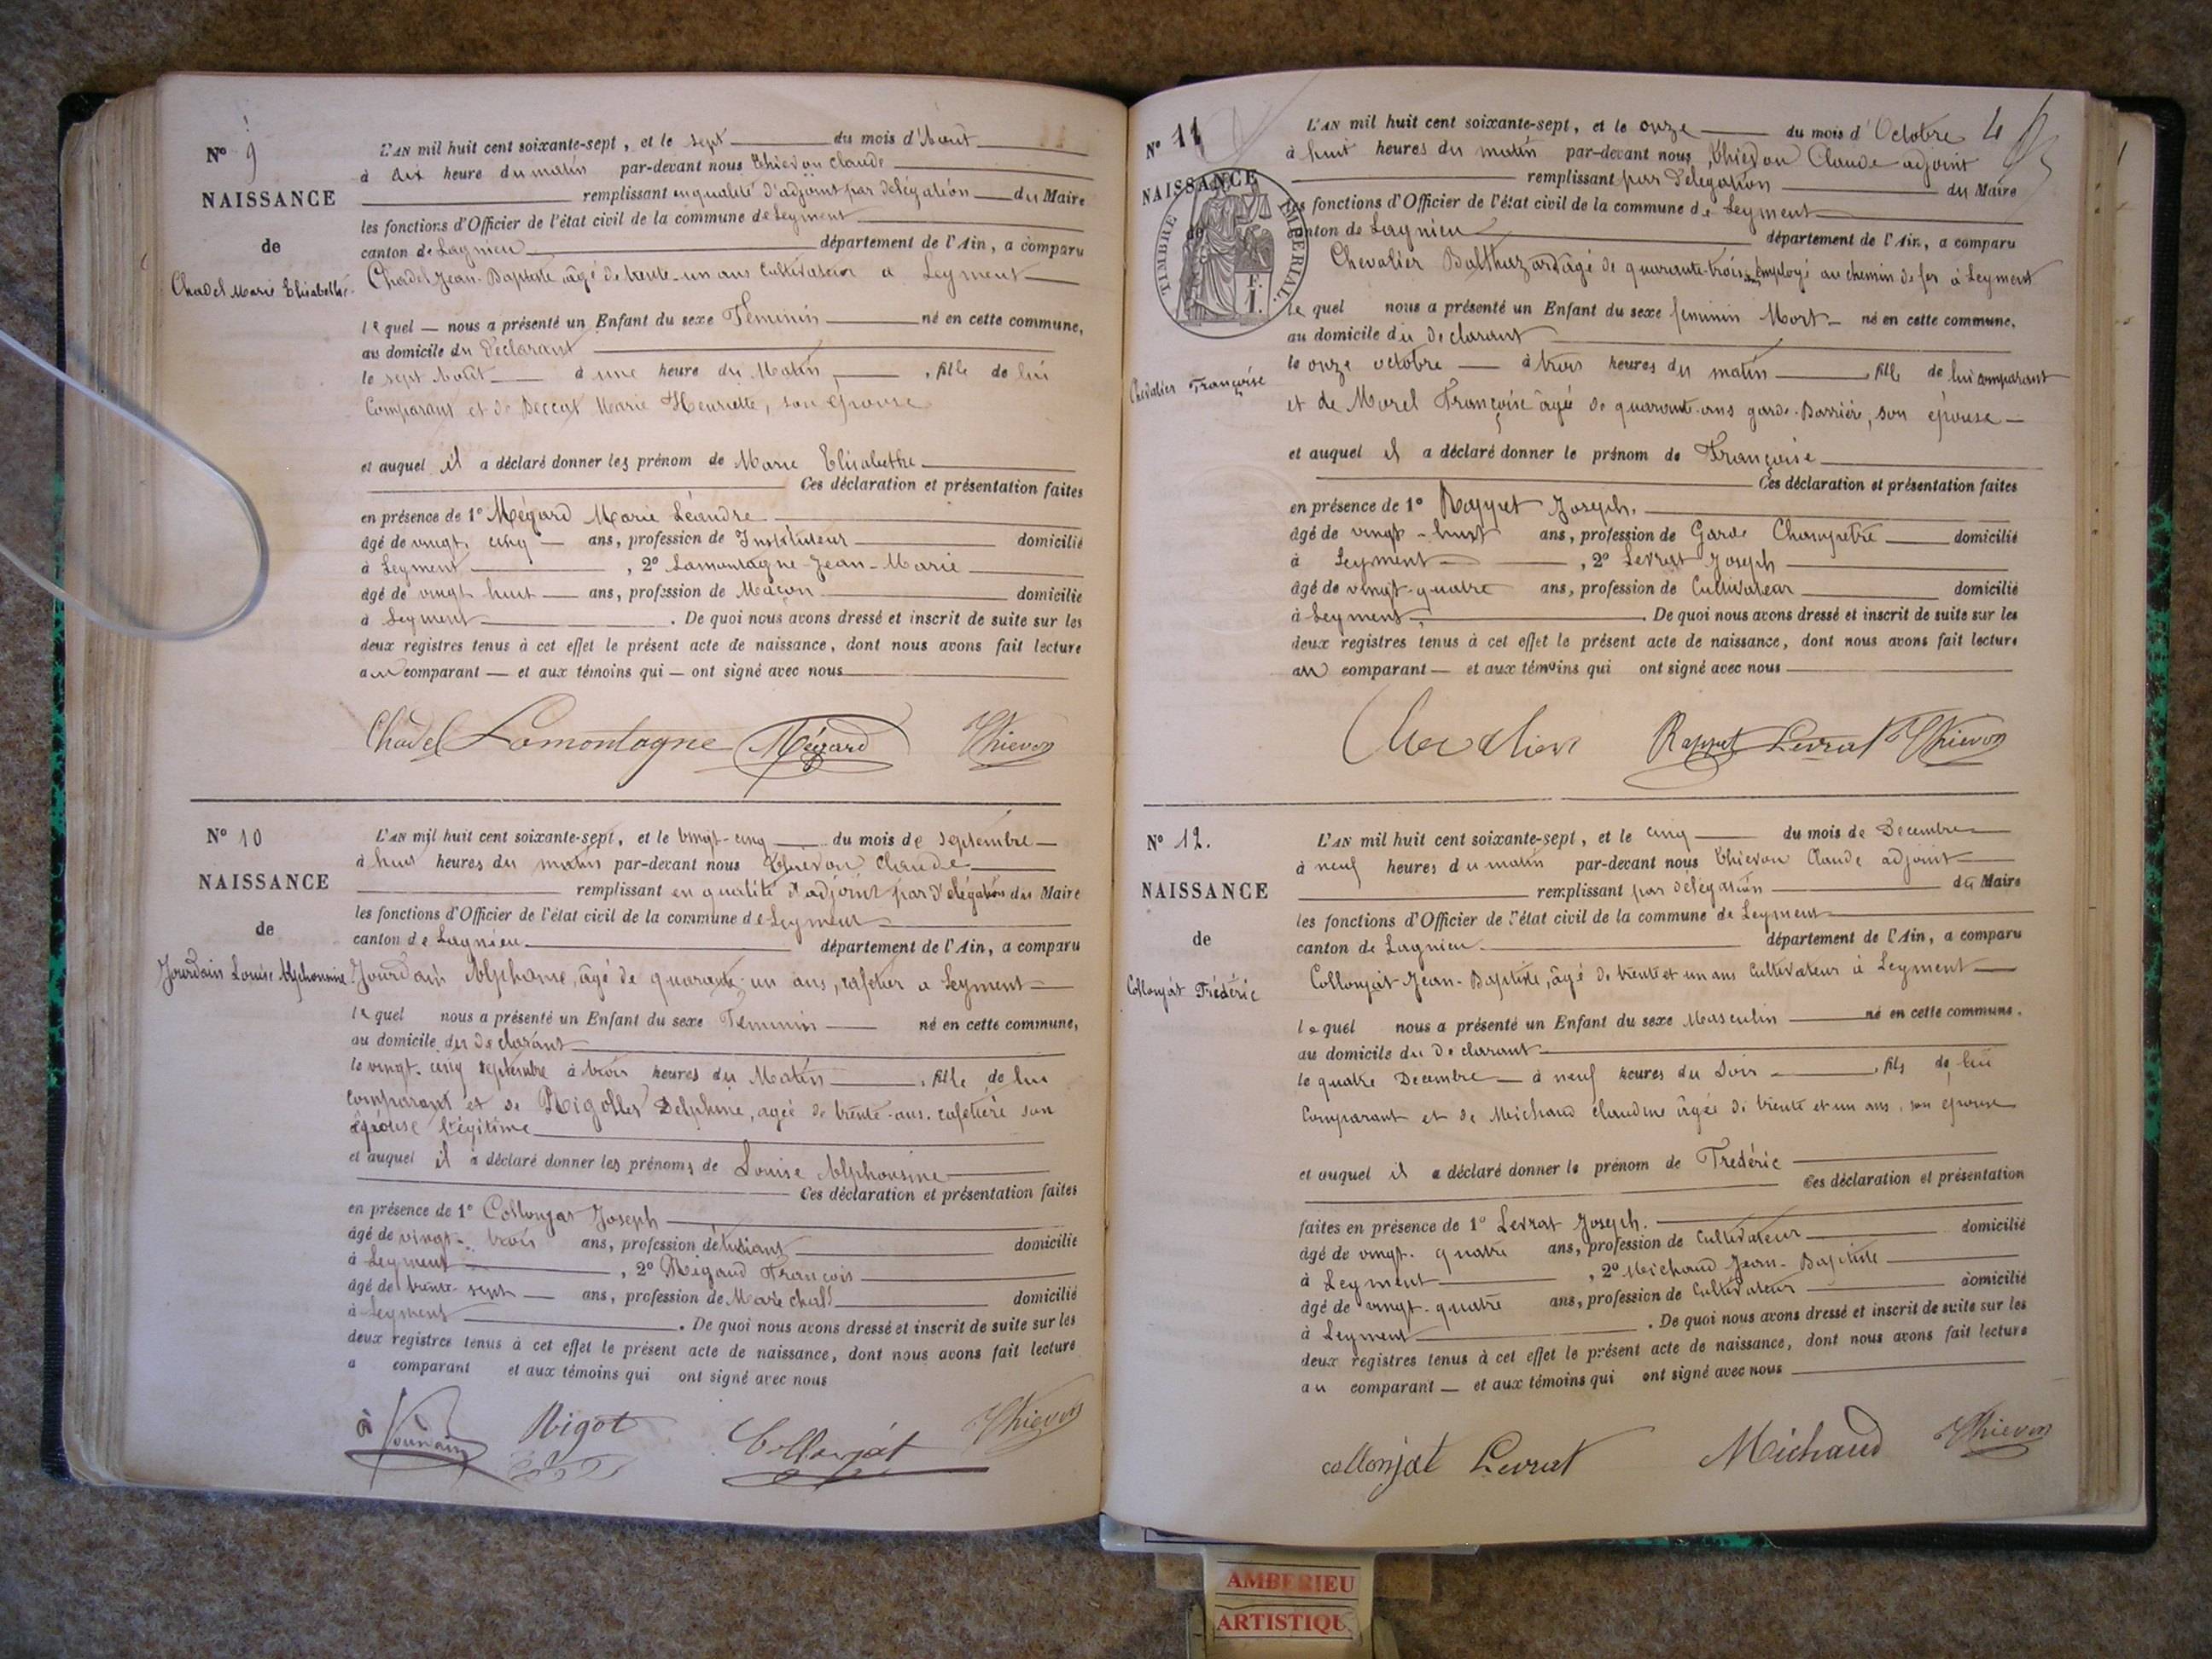 N° 9
NAISSANCE
de
Chadel Marie Elisabethe
L'AN mil huit cent soixante-sept, et le sept du mois d'Août
à dix heure du matin par-devant nous Thievon Claude
remplissant en qualité d'adjoint par délégation du Maire
les fonctions d'Officier de l'état civil de la commune de Leyment
canton de Lagnieu département de l'Ain, a comparu
Chadel Jean-Baptiste âgé de trente-un ans Cultivateur a Leyment
lequel nous a présenté un Enfant du sexe Féminin né en cette commune,
au domicile du Déclarant
le sept Août à une heure du Matin, fille de lui
Comparant et de Marie Henriette, son épouse
et auquel il a déclaré donner les prénom de Marie Elisabethe
Ces déclaration et présentation faites
en présence de 1° Mégard Marie Léandre
âgé de vingt cinq ans, profession de Instituteur domicilié
à Leyment, 2° Lamontagne Jean-Marie
âgé de vingt huit ans, profession de Maçon domicilié
à Leyment. De quoi nous avons dressé et inscrit de suite sur les
deux registres tenus à cet effet le présent acte de naissance, dont nous avons fait lecture
au comparant et aux témoins qui ont signé avec nous
Chadel Lamontagne Mégard Thievon
N° 10
NAISSANCE
de
Jourdain Louise Alphonsine
L'AN mil huit cent soixante-sept, et le vingt-cinq du mois de septembre
à huit heures du matin par-devant nous Thievon Claude
remplissant en qualité d'adjoint par délégation du Maire
les fonctions d'Officier de l'état civil de la commune de Leyment
canton de Lagnieu département de l'Ain, a comparu
Jourdain Alphonse, âgé de quarante-un ans, cafetier a Leyment
lequel nous a présenté un Enfant du sexe Féminin né en cette commune,
au domicile du déclarant
le vingt-cinq septembre à trois heures du Matin, fille de lui
comparant et de Rigollet Delphine, agée de trente ans cafetière son
épouse légitime
et auquel il a déclaré donner les prénoms de Louise Alphonsine
Ces déclaration et présentation faites
en présence de 1° Collonjat Joseph
âgé de vingt-trois ans, profession détudiant domicilié
à Leyment, 2° Rigaud François
âgé de trente-sept ans, profession de Maréchal domicilié
à Leyment. De quoi nous avons dressé et inscrit de suite sur les
deux registres tenus à cet effet le présent acte de naissance, dont nous avons fait lecture
a comparant et aux témoins qui ont signé avec nous
Jourdain Rigot Collonjat Thievon
N° 11
NAISSANCE
de
TIMBRE IMPERIAL
F.
1.
Chevalier Françoise
L'AN mil huit cent soixante-sept, et le onze du mois d'Octobre
à huit heures du matin par-devant nous Thievon Claude adjoint
remplissant par délégation du Maire
les fonctions d'Officier de l'état civil de la commune de Leyment
canton de Lagnieu département de l'Ain, a comparu
Chevalier Balthazard âgé de quarante-trois ans employé au chemin de fer à Leyment
lequel nous a présenté un Enfant du sexe feminin Mort né en cette commune,
au domicile du déclarant
le onze octobre à trois heures du matin, fille de lui comparant
et de Morel Françoise âgée de quarante ans garde-Barrière, son épouse
et auquel il a déclaré donner le prénom de Françoise
Ces déclaration et présentation faites
en présence de 1° Rappet Joseph,
âgé de vingt-huit ans, profession de Garde Champetre domicilié
à Leyment, 2° Levrat Joseph
âgé de vingt-quatre ans, profession de Cultivateur domicilié
à Leyment. De quoi nous avons dressé et inscrit de suite sur les
deux registres tenus à cet effet le présent acte de naissance, dont nous avons fait lecture
au comparant et aux témoins qui ont signé avec nous
Chevalier Rappet Levrat Thievon
N° 12.
NAISSANCE
de
Collonjat Frédéric
L'AN mil huit cent soixante-sept, et le cinq du mois de Decembre
à neuf heures du matin par-devant nous Thievon Claude adjoint
remplissant par délégation du Maire
les fonctions d'Officier de l'état civil de la commune de Leyment
canton de Lagnieu département de l'Ain, a comparu
Collonjat Jean-Baptiste, âgé de trente et un ans Cultivateur à Leyment
lequel nous a présenté un Enfant du sexe Masculin né en cette commune.
au domicile du Déclarant
le quatre Decembre à neuf heures du Soir, fils de lui
Comparant et de Michaud Claudine âgée de trente et un ans, son épouse
et auquel il a déclaré donner le prénom de Frédéric
Ces déclaration et présentation
faites en présence de 1° Levrat Joseph.
âgé de vingt-quatre ans, profession de Cultivateur domicilié
à Leyment, 2° Michaud Jean-Baptiste
âgé de vingt-quatre ans, profession de Cultivateur domicilié
à Leyment. De quoi nous avons dressé et inscrit de suite sur les
deux registres tenus à cet effet le présent acte de naissance, dont nous avons fait lecture
au comparant et aux témoins qui ont signé avec nous
collonjat Levrat Michaud Thievon
AMBERIEU
ARTISTIQUE